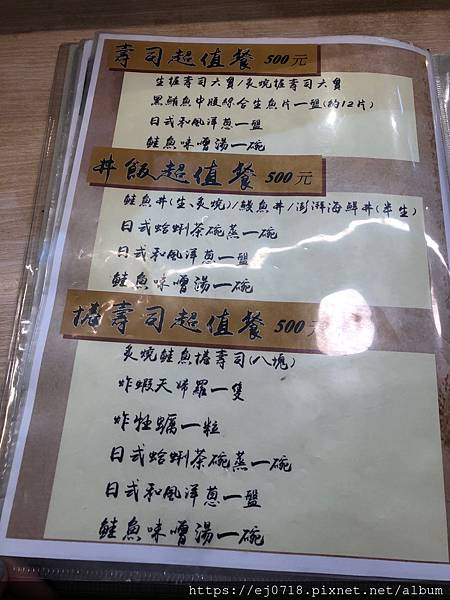 壽司超值餐 500元
生握壽司六貫/炙燒握壽司六貫
黑鮪魚中腹綜合生魚片一盤(約12片)
日式和風洋蔥一盤
鮭魚味噌湯一碗
丼飯超值餐 500元
鮭魚丼(生、炙燒)/鰻魚丼/澎湃海鮮丼(半生)
日式蛤蜊茶碗蒸一碗
日式和風洋蔥一盤
鮭魚味噌湯一碗
捲壽司超值餐 500元
炙燒鮭魚捲壽司(八塊)
炸蝦天婦羅一隻
炸牡蠣一粒
日式蛤蜊茶碗蒸一碗
日式和風洋蔥一盤
鮭魚味噌湯一碗
https://ej0718.pixnet.net/album